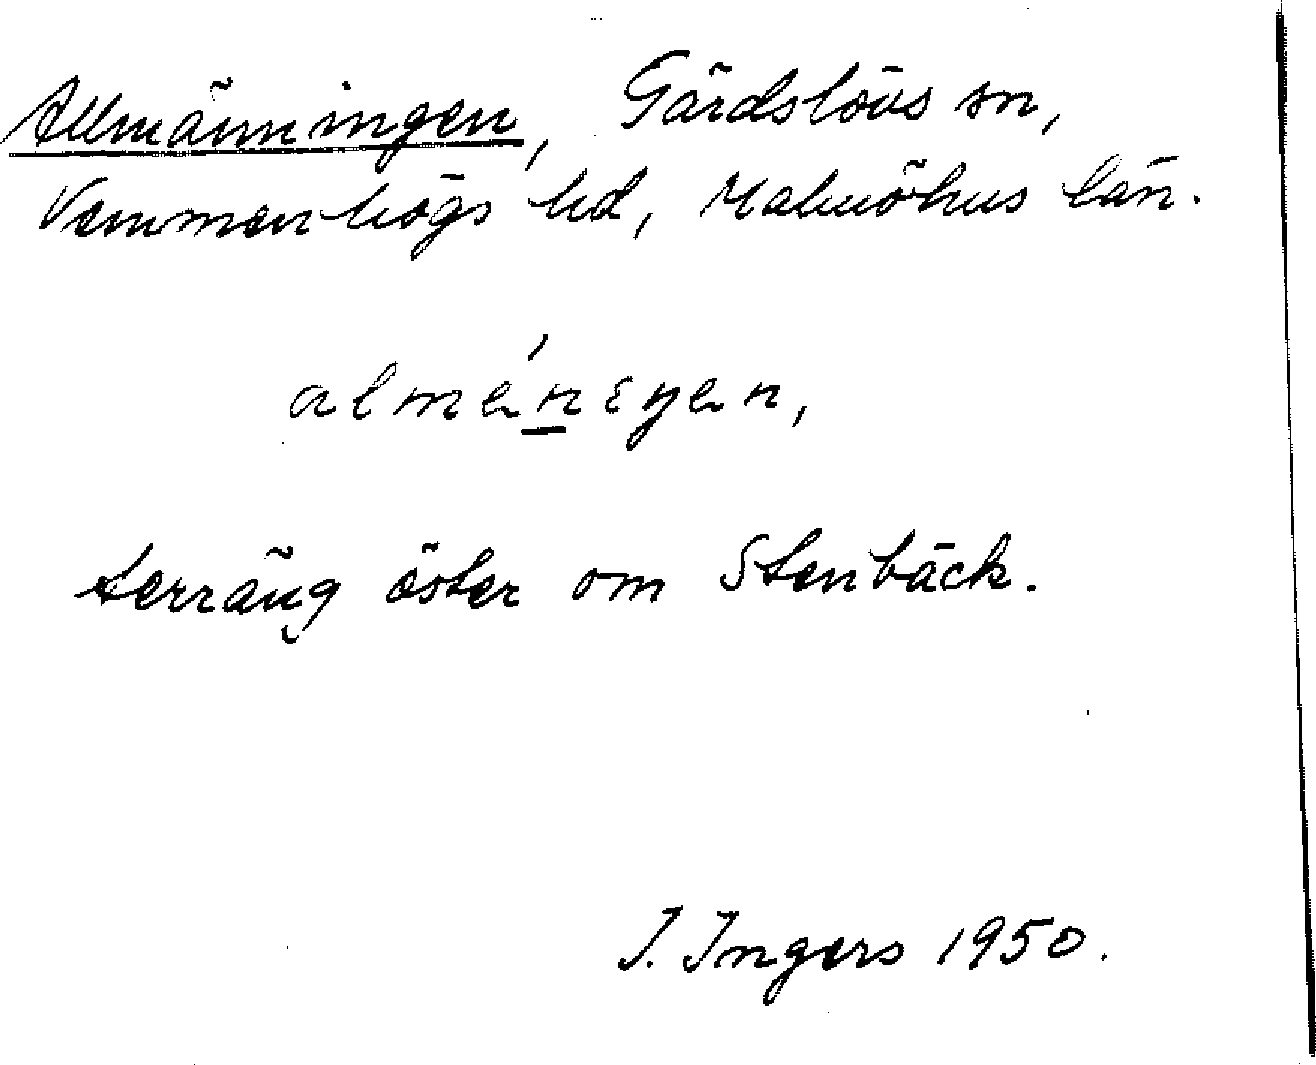 Allmänningen, Gärdslövs sn,
Vemmenhögs hd, Malmöhus län.
almén̲ɛŋen,
terräng öster om Stenbäck.
I. Ingers 1950.